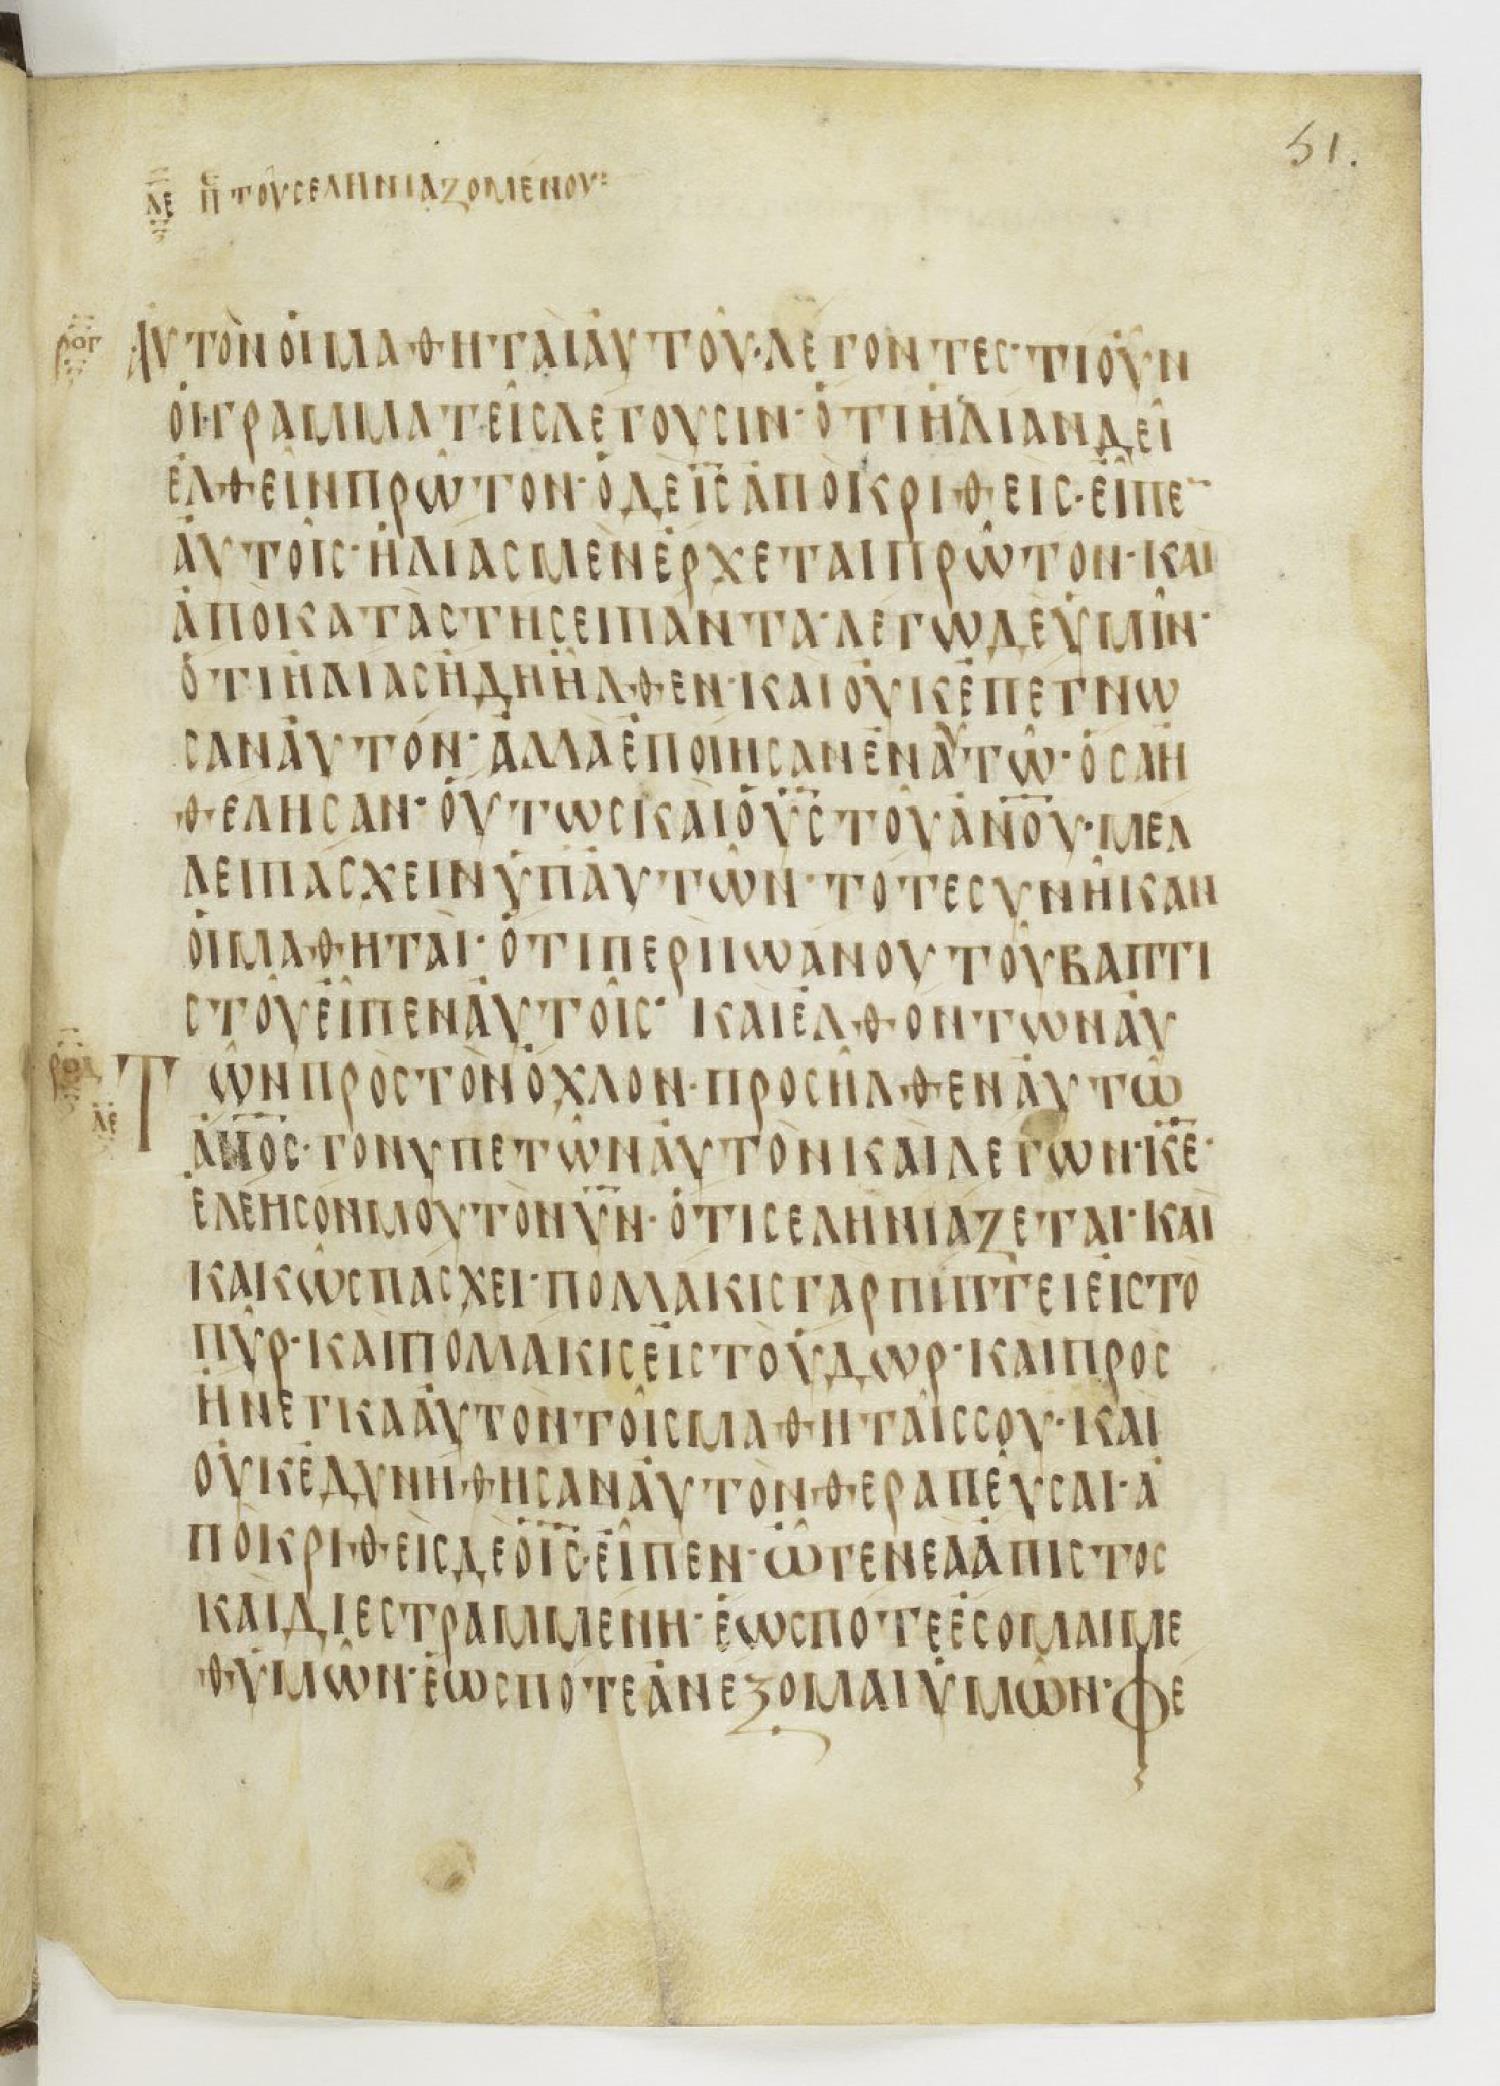 51.
ΛΕ ΠΕ ΤΟΥ ΣΕΛΗΝΙΑΖΟΜΕΝΟΥ:
ΡΟΓ ΑΥΤΟΝ ΟΙ ΜΑΘΗΤΑΙ ΑΥΤΟΥ· ΛΕΓΟΝΤΕΣ· ΤΙ ΟΥΝ
ΟΙ ΓΡΑΜΜΑΤΕΙΣ ΛΕΓΟΥΣΙΝ· ΟΤΙ ΗΛΙΑΝ ΔΕΙ
ΕΛΘΕΙΝ ΠΡΩΤΟΝ· Ο ΔΕ ΙΣ ΑΠΟΚΡΙΘΕΙΣ· ΕΙΠΕ
ΑΥΤΟΙΣ· ΗΛΙΑΣ ΜΕΝ ΕΡΧΕΤΑΙ ΠΡΩΤΟΝ· ΚΑΙ
ΑΠΟΚΑΤΑΣΤΗΣΕΙ ΠΑΝΤΑ· ΛΕΓΩ ΔΕ ΥΜΙΝ·
ΟΤΙ ΗΛΙΑΣ ΗΔΗ ΗΛΘΕΝ· ΚΑΙ ΟΥΚ ΕΠΕΓΝΩ
ΣΑΝ ΑΥΤΟΝ· ΑΛΛΑ ΕΠΟΙΗΣΑΝ ΕΝ ΑΥΤΩ· ΟΣΑ Η
ΘΕΛΗΣΑΝ· ΟΥΤΩΣ ΚΑΙ Ο ΥΣ ΤΟΥ ΑΝΟΥ· ΜΕΛ
ΛΕΙ ΠΑΣΧΕΙΝ ΥΠ ΑΥΤΩΝ· ΤΟΤΕ ΣΥΝΗΚΑΝ
ΟΙ ΜΑΘΗΤΑΙ· ΟΤΙ ΠΕΡΙ ΙΩΑΝΟΥ ΤΟΥ ΒΑΠΤΙ
ΣΤΟΥ ΕΙΠΕΝ ΑΥΤΟΙΣ· ΚΑΙ ΕΛΘΟΝΤΩΝ ΑΥ
ΡΟΔ ΛΕ ΤΩΝ ΠΡΟΣ ΤΟΝ ΟΧΛΟΝ· ΠΡΟΣΗΛΘΕΝ ΑΥΤΩ
ΑΝΟΣ· ΓΟΝΥΠΕΤΩΝ ΑΥΤΟΝ ΚΑΙ ΛΕΓΩΝ· ΚΕ·
ΕΛΕΗΣΟΝ ΜΟΥ ΤΟΝ ΥΝ· ΟΤΙ ΣΕΛΗΝΙΑΖΕΤΑΙ· ΚΑΙ
ΚΑΚΩΣ ΠΑΣΧΕΙ· ΠΟΛΛΑΚΙΣ ΓΑΡ ΠΙΠΤΕΙ ΕΙΣ ΤΟ
ΠΥΡ· ΚΑΙ ΠΟΛΛΑΚΙΣ ΕΙΣ ΤΟ ΥΔΩΡ· ΚΑΙ ΠΡΟΣ
ΗΝΕΓΚΑ ΑΥΤΟΝ ΤΟΙΣ ΜΑΘΗΤΑΙΣ ΣΟΥ· ΚΑΙ
ΟΥΚ ΕΔΥΝΗΘΗΣΑΝ ΑΥΤΟΝ ΘΕΡΑΠΕΥΣΑΙ· Α
ΠΟΚΡΙΘΕΙΣ ΔΕ Ο ΙΣ· ΕΙΠΕΝ· Ω ΓΕΝΕΑ ΑΠΙΣΤΟΣ
ΚΑΙ ΔΙΕΣΤΡΑΜΜΕΝΗ· ΕΩΣ ΠΟΤΕ ΕΣΟΜΑΙ ΜΕ
Θ ΥΜΩΝ· ΕΩΣ ΠΟΤΕ ΑΝΕΞΟΜΑΙ ΥΜΩΝ· ΦΕ